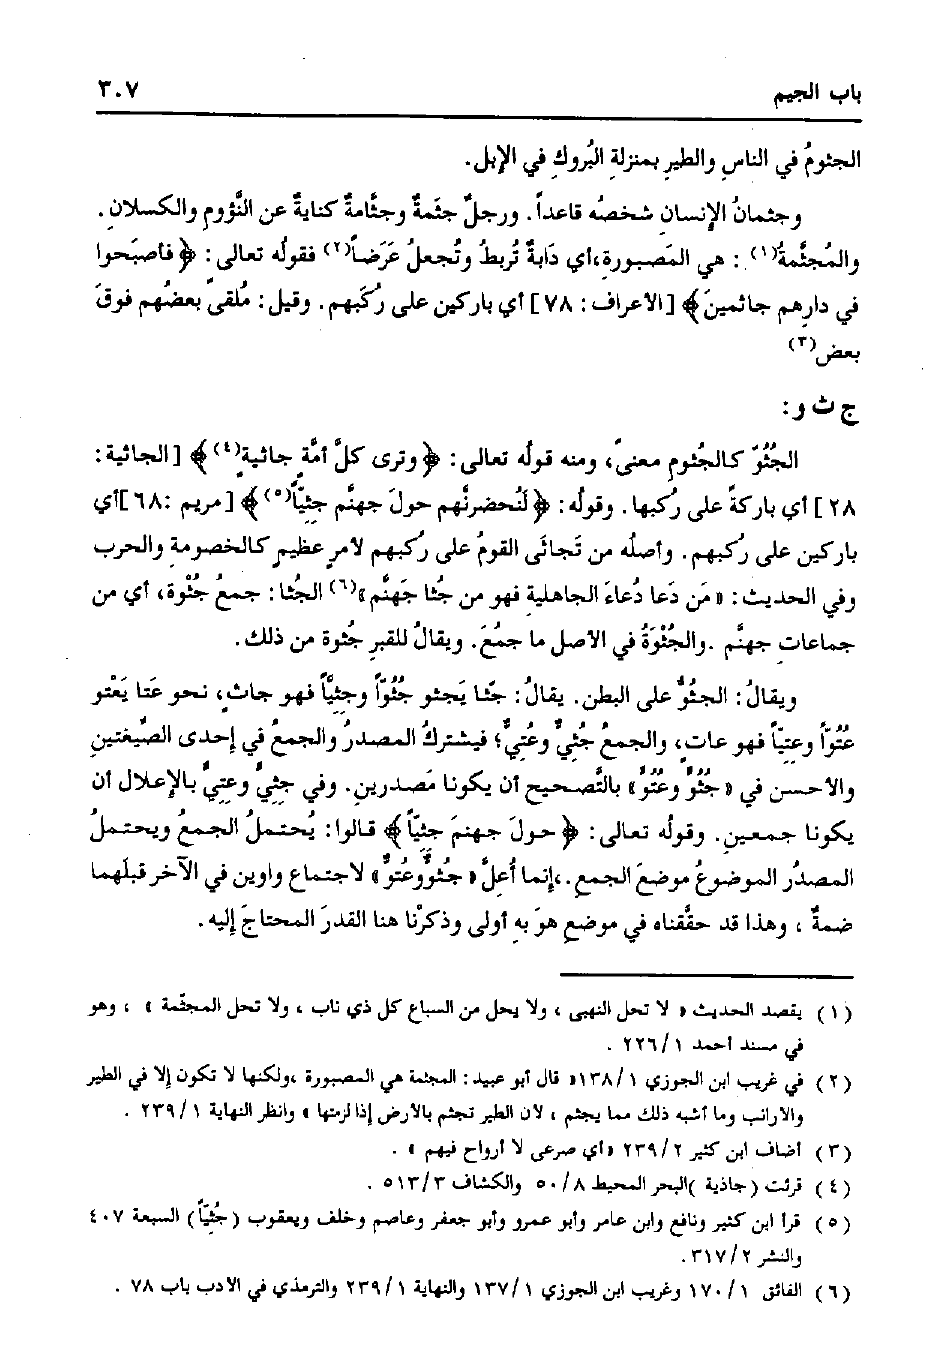 باب الجيم ٣٠٧
الجثومُ في الناسِ والطيرِ بمنزلةِ البُروكِ في الإِبل.
وجثمانُ الإنسانِ شخصُه قاعداً. ورجلٌ جثَمةٌ وجثَّامةٌ كنايةٌ عن النَّؤومِ والكسلانِ.
والمُجثَّمةُ(١) : هي المَصبورة، أي دَابةٌ تُربطُ وتُجعلُ عَرَضاً(٢) فقولُه تعالى: ﴿ فأصبَحوا
في دارِهم جاثمينَ﴾ [الأعراف: ٧٨] أي باركين على رُكَبهم. وقيل: مُلقىً بعضُهم فوقَ
بعض(٣)
ج ث و:
الجُثُوّ كالجُثوم معنىً، ومنه قولُه تعالى: ﴿ وترى كلَّ أمَّةٍ جاثيةٍ(٤)﴾ [الجاثية:
٢٨] أي باركةً على رُكبها. وقولُه: ﴿ لَنُحضرنَّهم حولَ جهنَّم جِثِيّاً(٥)﴾ [مريم :٦٨] أي
باركين على رُكبهم. وأصلُه من تَجاثَى القومُ على رُكبهم لأمرٍ عظيمٍ كالخصومةِ والحرب
وفي الحديث: «مَن دَعا دُعاءَ الجاهليةِ فهو من جُثا جَهنَّم»(٦) الجُثا: جمعُ جُثْوة، أي من
جماعاتِ جهنَّم .والجُثْوَةُ في الأصل ما جمُعَ. ويقالُ للقبرِ جُثوة من ذلك.
ويقالُ: الجثُوُّ على البطن. يقالُ: جَثا يَجثو جُثُوّاً وجثِيّاً فهو جاثٍ، نحو عَتا يَعْتو
عُتُوّاً وعتِيّاً فهو عاتٍ، والجمعُ جُثِيٌّ وعُتِيٌّ؛ فيشتركُ المصدرُ والجمعُ في إحدى الصِّيغتينِ
والأحسن في «جثُوٍّ وعتُوٍّ» بالتَّصحيح أن يكونا مَصدرين. وفي جثِيٍّ وعتِيٍّ بالإعلال أن
يكونا جمعينِ. وقولُه تعالى: ﴿ حولَ جهنمَ جثِيّاً﴾ قالوا: يُحتملُ الجمعُ ويحتملُ
المصدرُ الموضوعُ موضعَ الجمع .، إنما أُعلَّ «جثُوٌّ وعُتُوٌّ» لاجتماعِ واوين في الآخر قبلَهما
ضمةٌ ، وهذا قد حقَّقناه في موضعٍ هوَ بهِ أولى وذكرْنا هنا القدرَ المحتاجَ إليه.
(١) يقصد الحديث « لا تحل النهبى ، ولا يحل من السباع كل ذي ناب ، ولا تحل المجثّمة » ، وهو
في مسند أحمد ١/ ٢٢٦ .
(٢) في غريب ابن الجوزي ١/ ١٣٨« قال أبو عبيد: المجثمة هي المصبورة ،ولكنها لا تكون إلا في الطير
والأرانب وما أشبه ذلك مما يجثم ، لأن الطير تجثم بالأرض إذا لزمتها » وانظر النهاية ١/ ٢٣٩ .
(٣) أضاف ابن كثير ٢/ ٢٣٩ «أي صرعى لا أرواح فيهم » .
(٤) قرئت (جاذية )البحر المحيط ٨/ ٥٠ والكشاف ٣/ ٥١٣ .
(٥) قرأ ابن كثير ونافع وابن عامر وأبو عمرو وأبو جعفر وعاصم وخلف ويعقوب (جُثيّاً) السبعة ٤٠٧
والنشر ٢/ ٣١٧.
(٦) الفائق ١/ ١٧٠ وغريب ابن الجوزي ١/ ١٣٧ والنهاية ١/ ٢٣٩ والترمذي في الأدب باب ٧٨ .